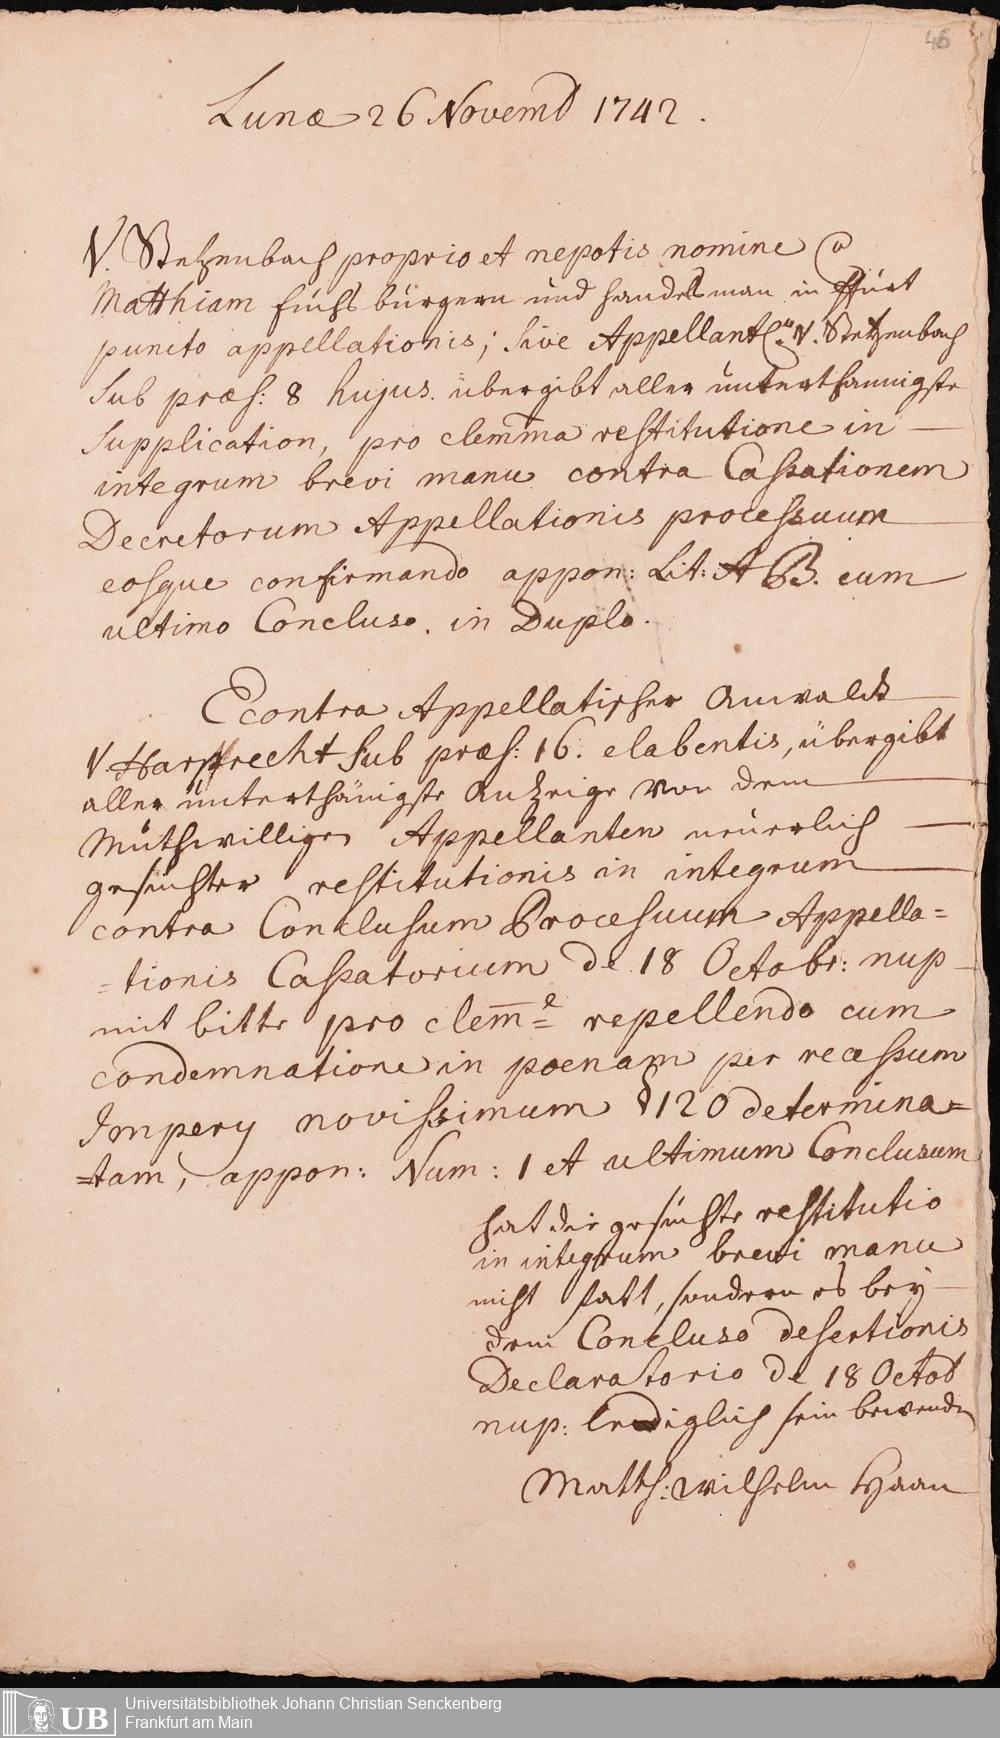 46
Lunæ 26 Novemb 1742.
V. Stetzenbach proprio et nepotis nomine Ca
Matthiam Fuchs bürgern und handelsman in ffurt
puncto appellationis; sive Appellant. V. Stetzenbach
sub præs: 8 hujus. übergibt aller unterthännigste
Supplication, pro clemma restitutione in
integrum brevi manu contra Cassationem
Decretorum Appellationis processuum
eosque confirmando appon: Lit: A B. cum
ultimo Concluso. in Duplo.
Econtra Appellatischer Anwaldt
V. Harpprecht sub præs: 16. elabentis, übergibt
aller unterthänigste Anzeige von dem
Muthwilligen Appellanten neuerlich
gesuchter restitutionis in integrum
contra Conclusum Processuum Appella=
=tionis Cassatorium de 18 Octobr: nup
mit bitte pro clemme repellendo cum
condemnatione in poenam per recessum
Impery novissimum § 120 determina=
=tam, appon: Num: 1 et ultimum Conclusum
hat die gesuchte restitutio
in integrum brevi manu
nicht statt, sondern es bey
dem Concluso desertionis
Declaratorio de 18 Octob
nup: lediglich sein bewenden
Matth: Wilhelm Haan
UB
Universitätsbibliothek Johann Christian Senckenberg
Frankfurt am Main